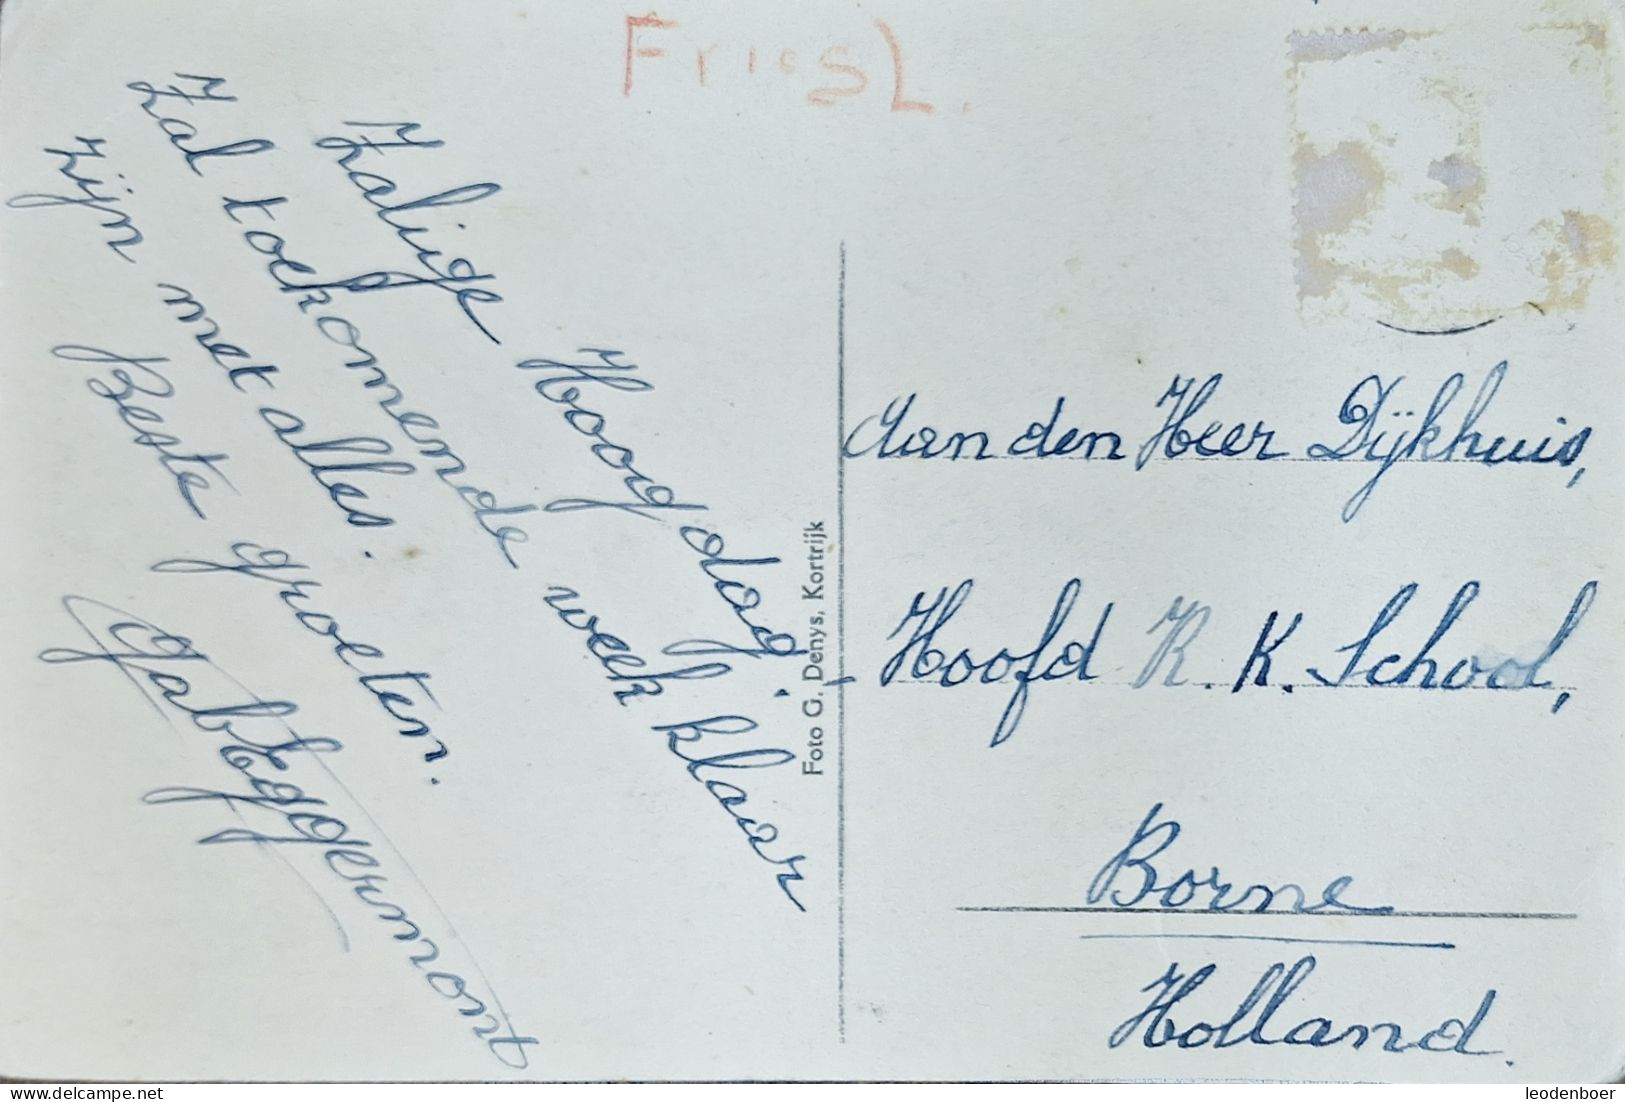 FriesL.
Zalige Hoogdag.
Zal toekomende week klaar
zijn met alles.
Beste groeten.
Foto G. Denys, Kortrijk
Aan den Heer Dijkhuis,
Hoofd R. K. School,
Borne
Holland.
leodenboer